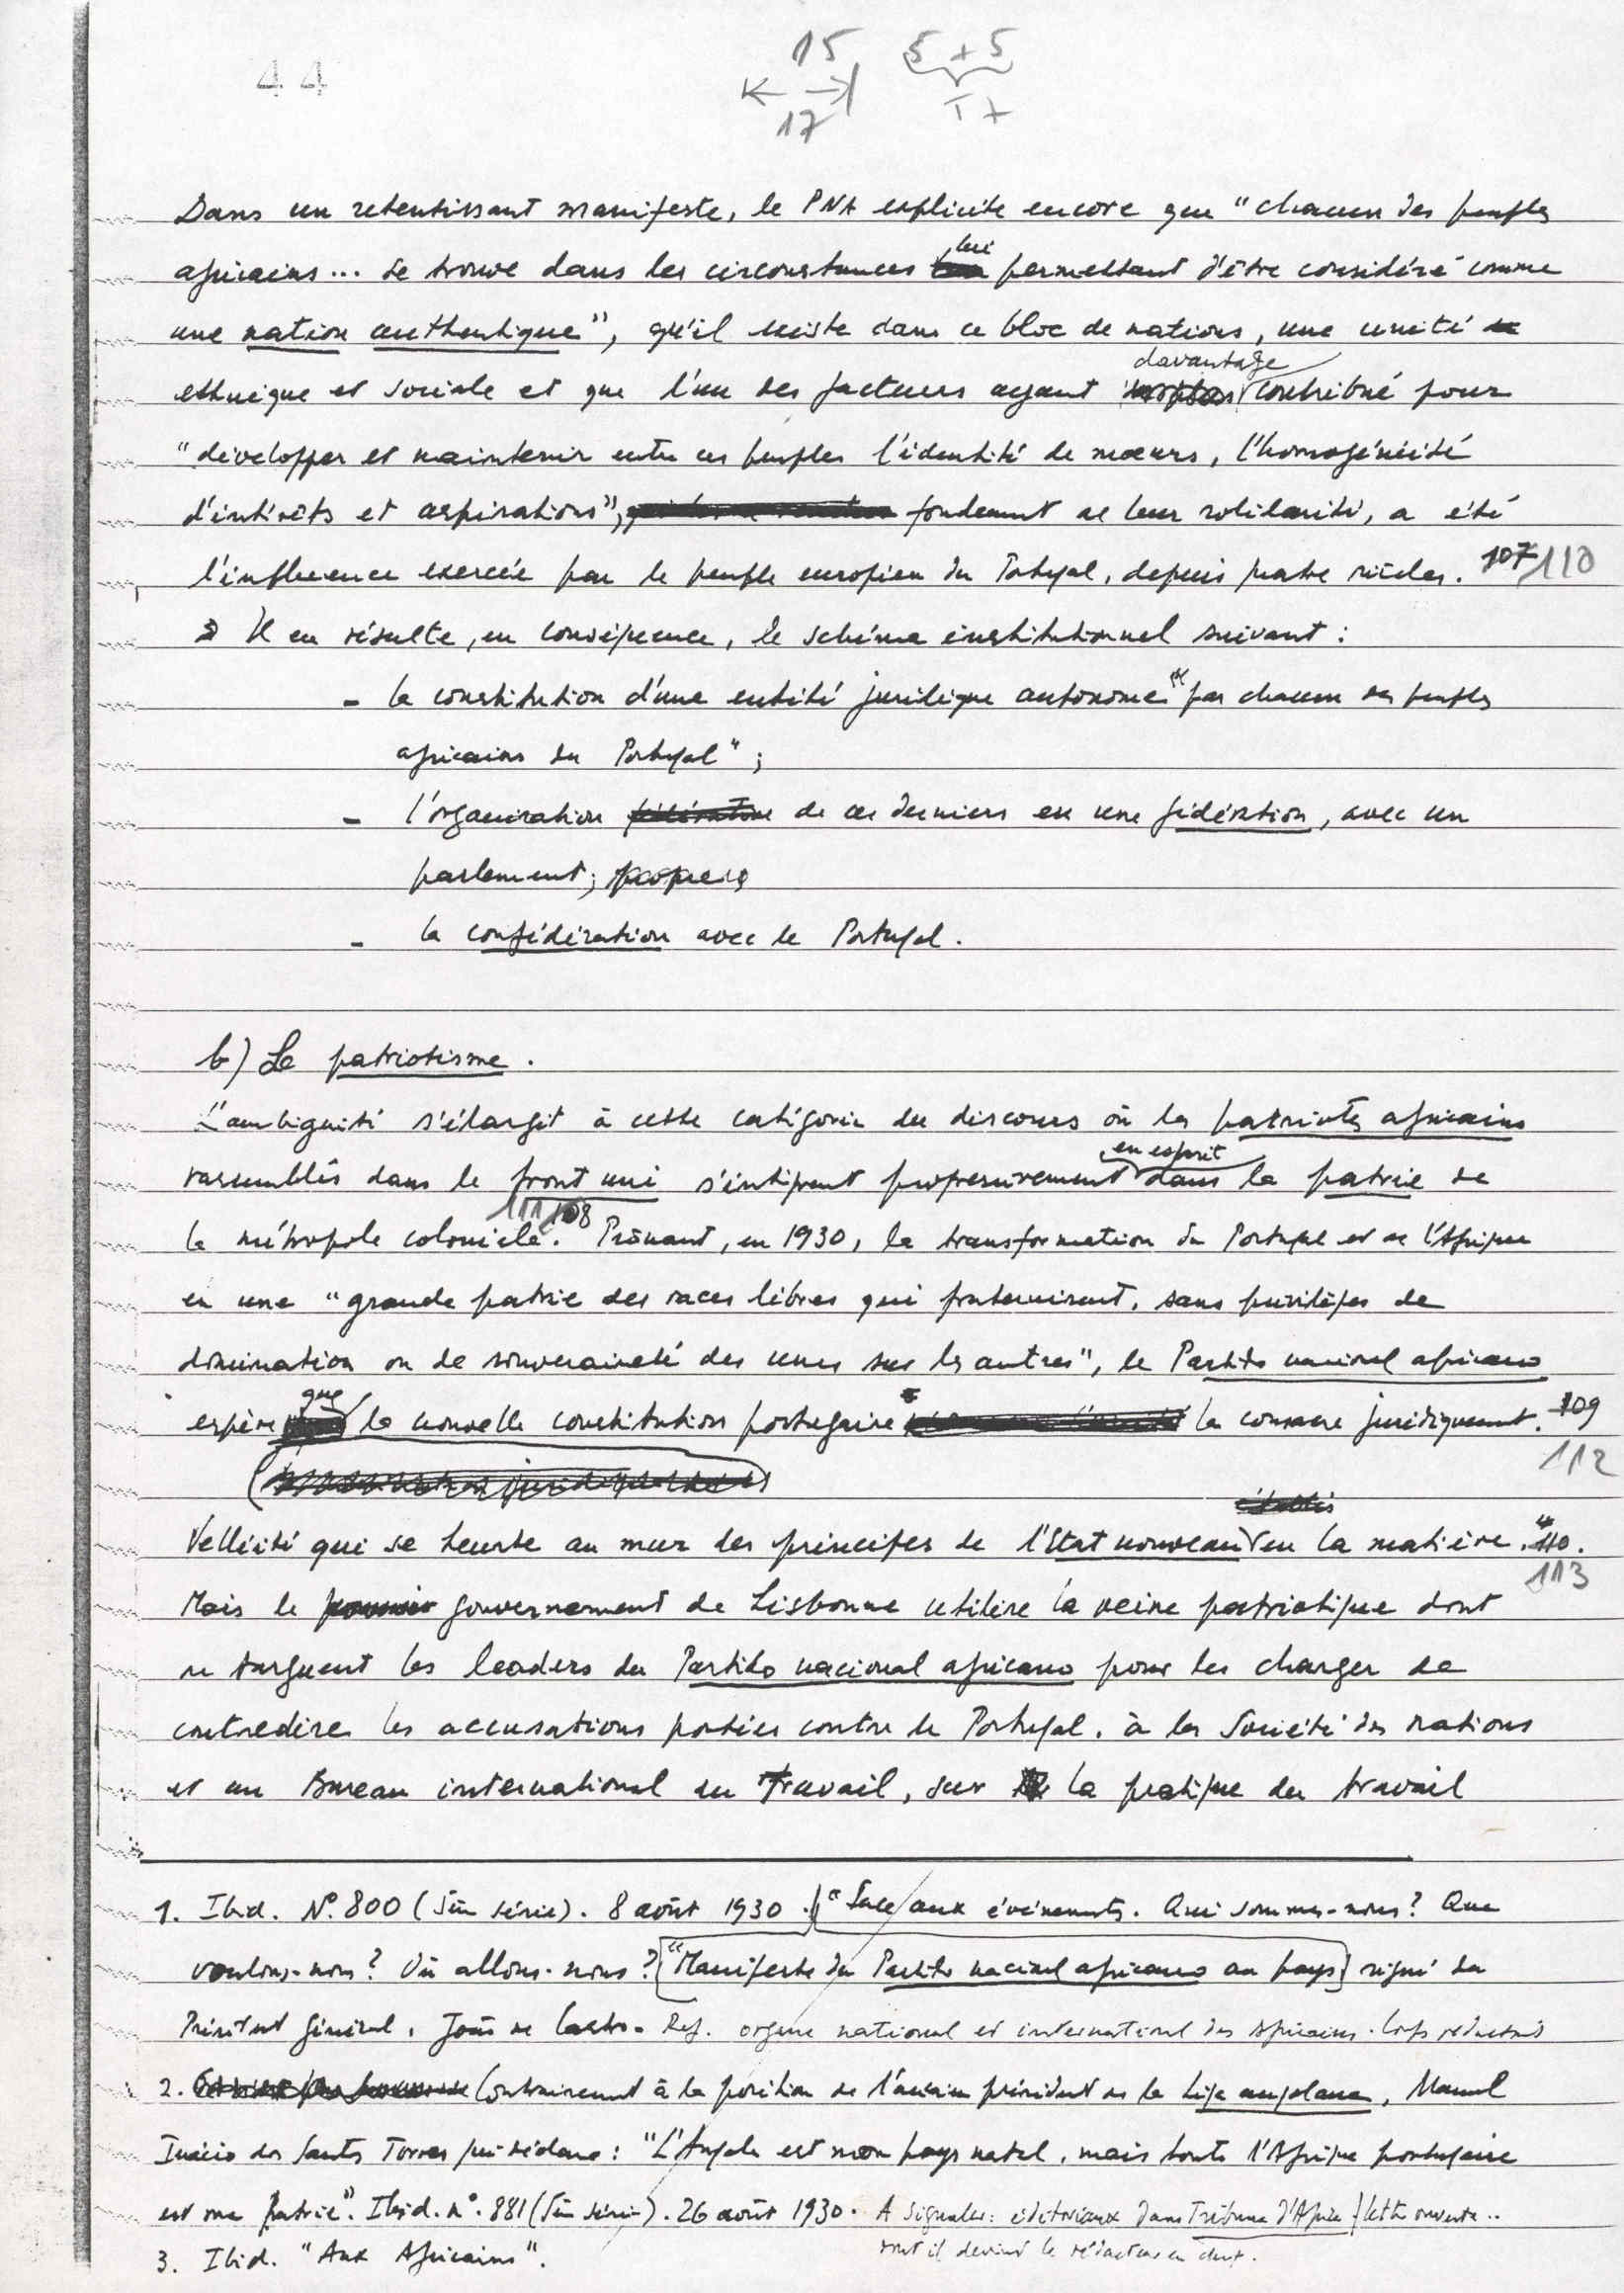 44
15 5 + 5
17
Dans un retentissant manifeste, le PNA explicite encore que "chacun des peuples
africains... se trouve dans les circonstances lui permettant d'être considéré comme
une nation authentique", qu'il existe dans ce bloc de nations, une unité
davantage
ethnique et sociale et que l'un des facteurs ayant contribué pour
"développer et maintenir entre ces peuples l'identité de mœurs, l'homogénéité
d'intérêts et aspirations", fondement de leur solidarité, a été
l'influence exercée par le peuple européen du Portugal, depuis quatre siècles. 107 110
Il en résulte, en conséquence, le schéma institutionnel suivant :
- la constitution d'une entité juridique autonome "par chacun des peuples
africains du Portugal" ;
- l'organisation de ces derniers en une fédération, avec un
parlement ;
- la confédération avec le Portugal.
b) Le patriotisme.
L'ambiguité s'élargit à cette catégorie du discours où les patriotes africains
en esprit
rassemblés dans le front uni s'intègrent progressivement dans la patrie de
111 108
la métropole coloniale. Prônant, en 1930, la transformation du Portugal et de l'Afrique
en une "grande patrie des races libres qui fraternisent, sans privilèges de
domination ou de souveraineté des unes sur les autres", le Partido nacional africano
espère que la nouvelle constitution portugaise la consacre juridiquement. 109
112
Velléité qui se heurte au mur des principes de l'Etat nouveau en la matière. 110.
113
Mais le gouvernement de Lisbonne utilise la veine patriotique dont
se targuent les leaders du Partido nacional africano pour les charger de
contredire les accusations portées contre le Portugal, à la Société des Nations
et au Bureau international du Travail, sur la pratique du travail
1. Ibid. N°. 800 (5è série). 8 août 1930. "Face aux événements. Qui sommes-nous ? Que
voulons-nous ? Où allons-nous ? "Manifeste du Partido nacional africano au pays signé du
Président Général, João de Castro. Ref. organe national et international des Africains. Corps
2. Contrairement à la position de l'ancien président de la Liga angolana, Manuel
Inácio dos Santos Torres qui déclare : "L'Angola est mon pays natal, mais toute l'Afrique portugaise
est ma patrie". Ibid. n°. 881 (5è série). 26 août 1930. A signaler : éditoriaux dans Tribune d'Afrique / lettre ouverte..
dont il devint le rédacteur en chef.
3. Ibid. "Aux Africains".